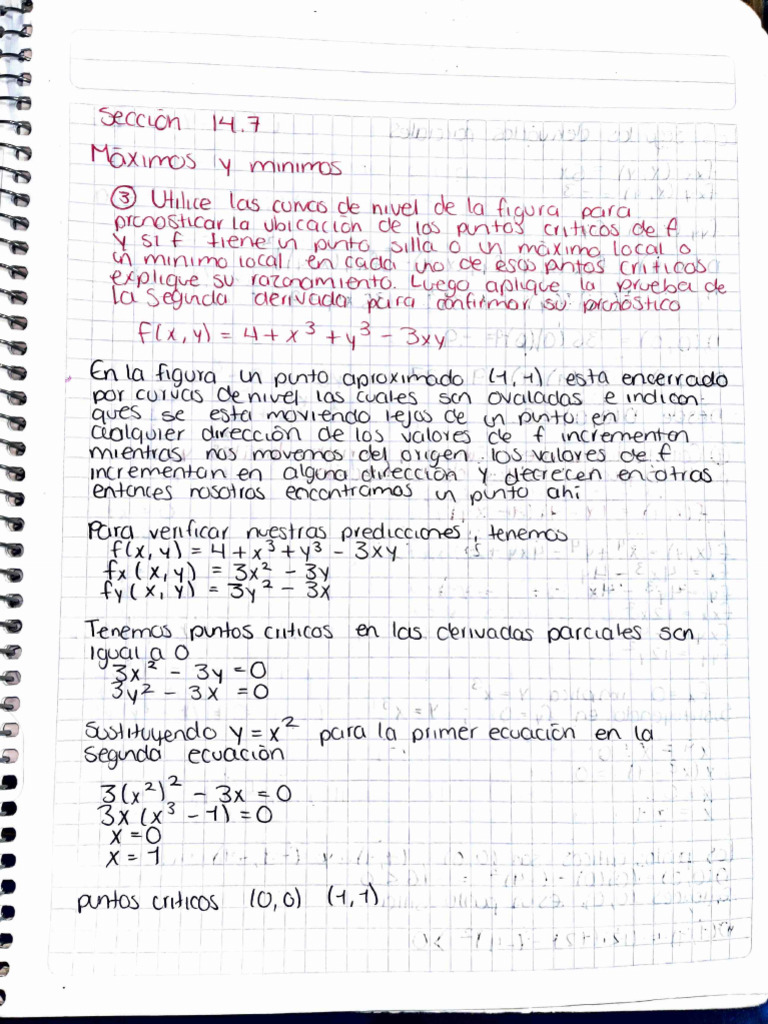 Sección 14.7
Máximos y minimos
③ Utilice las curvas de nivel de la figura para
pronosticar la ubicación de los puntos criticos de f
y si f tiene un punto silla o un máximo local o
un minimo local en cada uno de esos puntos criticos
explique su razonamiento. Luego aplique la prueba de
la segunda derivada para confirmar su pronóstico
f(x,y) = 4 + x³ + y³ - 3xy
En la figura un punto aproximado (1,1) esta encerrado
por curvas de nivel las cuales son ovaladas e indican
ques se esta moviendo lejos de un punto en
cualquier dirección de los valores de f incrementan
mientras nos movemos del origen los valores de f
incrementan en alguna dirección y decrecen en otras
entonces nosotros encontramos un punto ahí
Para verificar nuestras predicciones, tenemos
f(x,y) = 4 + x³ + y³ - 3xy
fx(x,y) = 3x² - 3y
fy(x,y) = 3y² - 3x
Tenemos puntos criticos en las derivadas parciales son
igual a 0
3x² - 3y = 0
3y² - 3x = 0
Sustituyendo y = x² para la primer ecuación en la
segunda ecuación
3(x²)² - 3x = 0
3x(x³ - 1) = 0
x = 0
x = 1
puntos criticos (0,0) (1,1)